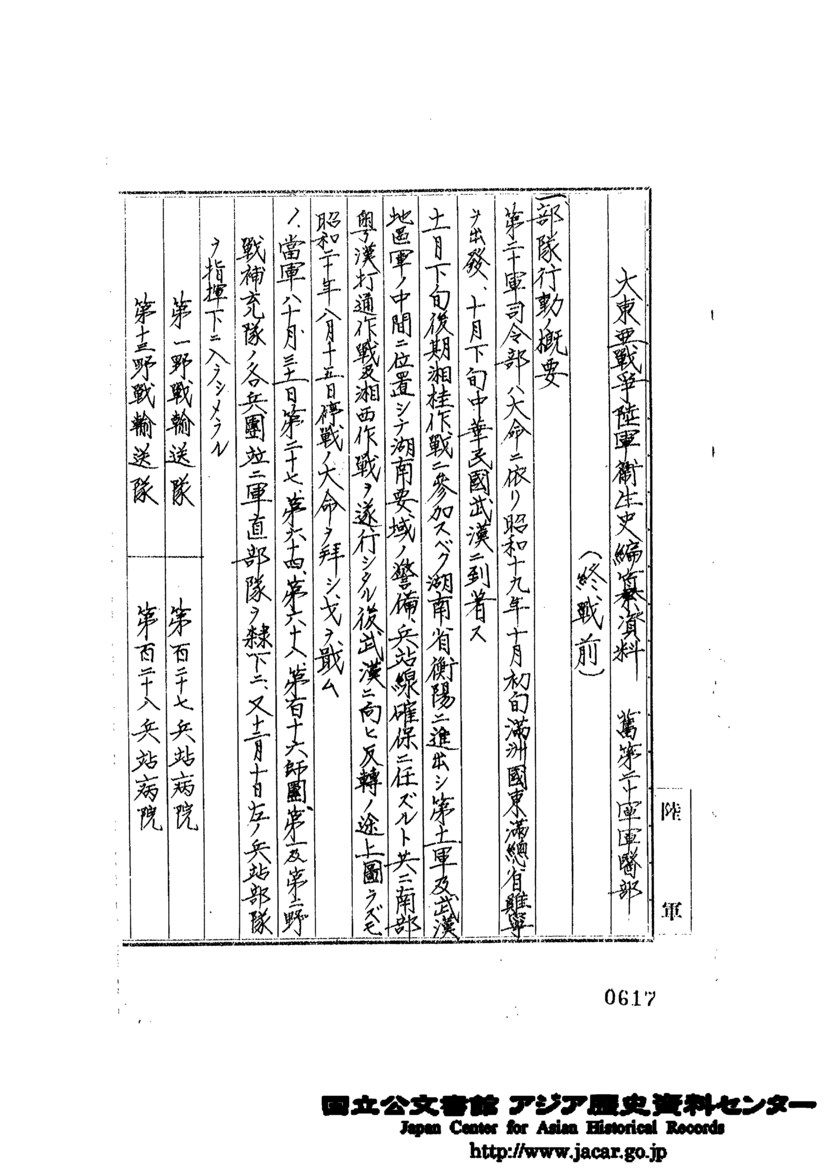 大東亜戦争陸軍衞生史編纂資料　萬第二十軍軍醫部
（終戦前）
一、部隊行動ノ概要
第二十軍司令部ハ大命ニ依リ昭和十九年十月初旬滿洲國東滿總省雞寧
ヲ出發、十月下旬中華民國武漢ニ到着ス
十一月下旬後期湘桂作戦ニ參加スベク湖南省衡陽ニ進出シ第十一軍及武漢
地區軍ノ中間ニ位置シナ湖南要域ノ警備、兵站線確保ニ任ズルト共ニ南部
粤漢打通作戦及湘西作戦ヲ遂行シタル後武漢ニ向ヒ反轉ノ途上圖ラズモ
昭和二十年八月十五日停戦ノ大命ヲ拜シ戈ヲ戢ム
ノ、當軍ハ十月三十一日第二十七、第六十四、第六十八、第百十六師團、第一及第二野
戦補充隊ノ各兵團竝ニ軍直部隊ヲ隷下ニ、又十二月十日左ノ兵站部隊
ヲ指揮下ニ入ラシメラル
第一野戰輸送隊　第百二十七兵站病院
第十三野戰輸送隊　第百二十八兵站病院
陸軍
0617
国立公文書館 アジア歴史資料センター
Japan Center for Asian Historical Records
http://www.jacar.go.jp